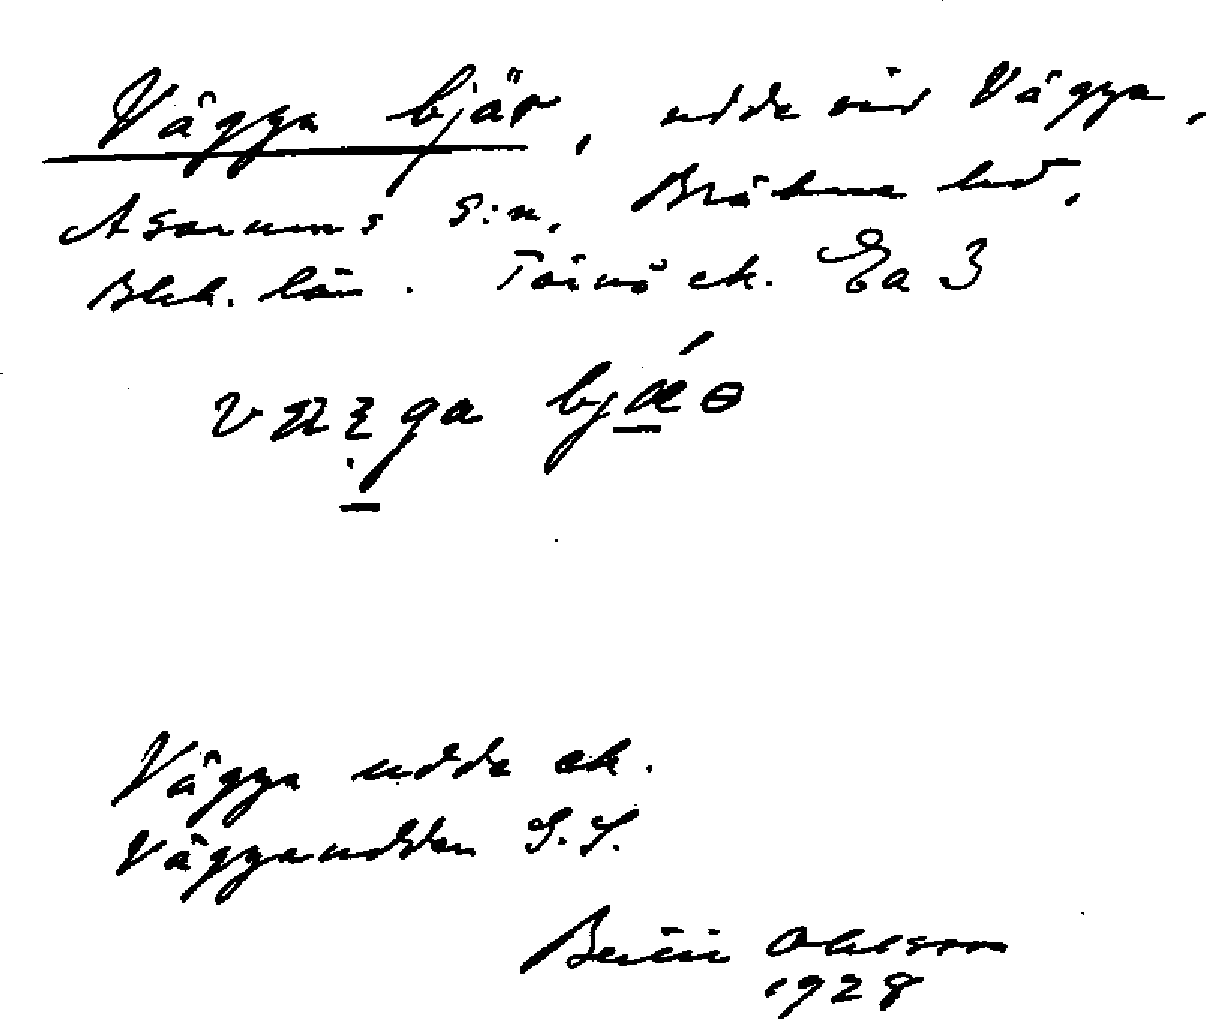 Vägga bjär, udde vid Vägga,
Asarums s:n, Bräkne hd,
Blek. län. Tärnö ek. Ea 3
Vägga udde ek.
Väggaudden G.S.
Ohlsson
1928